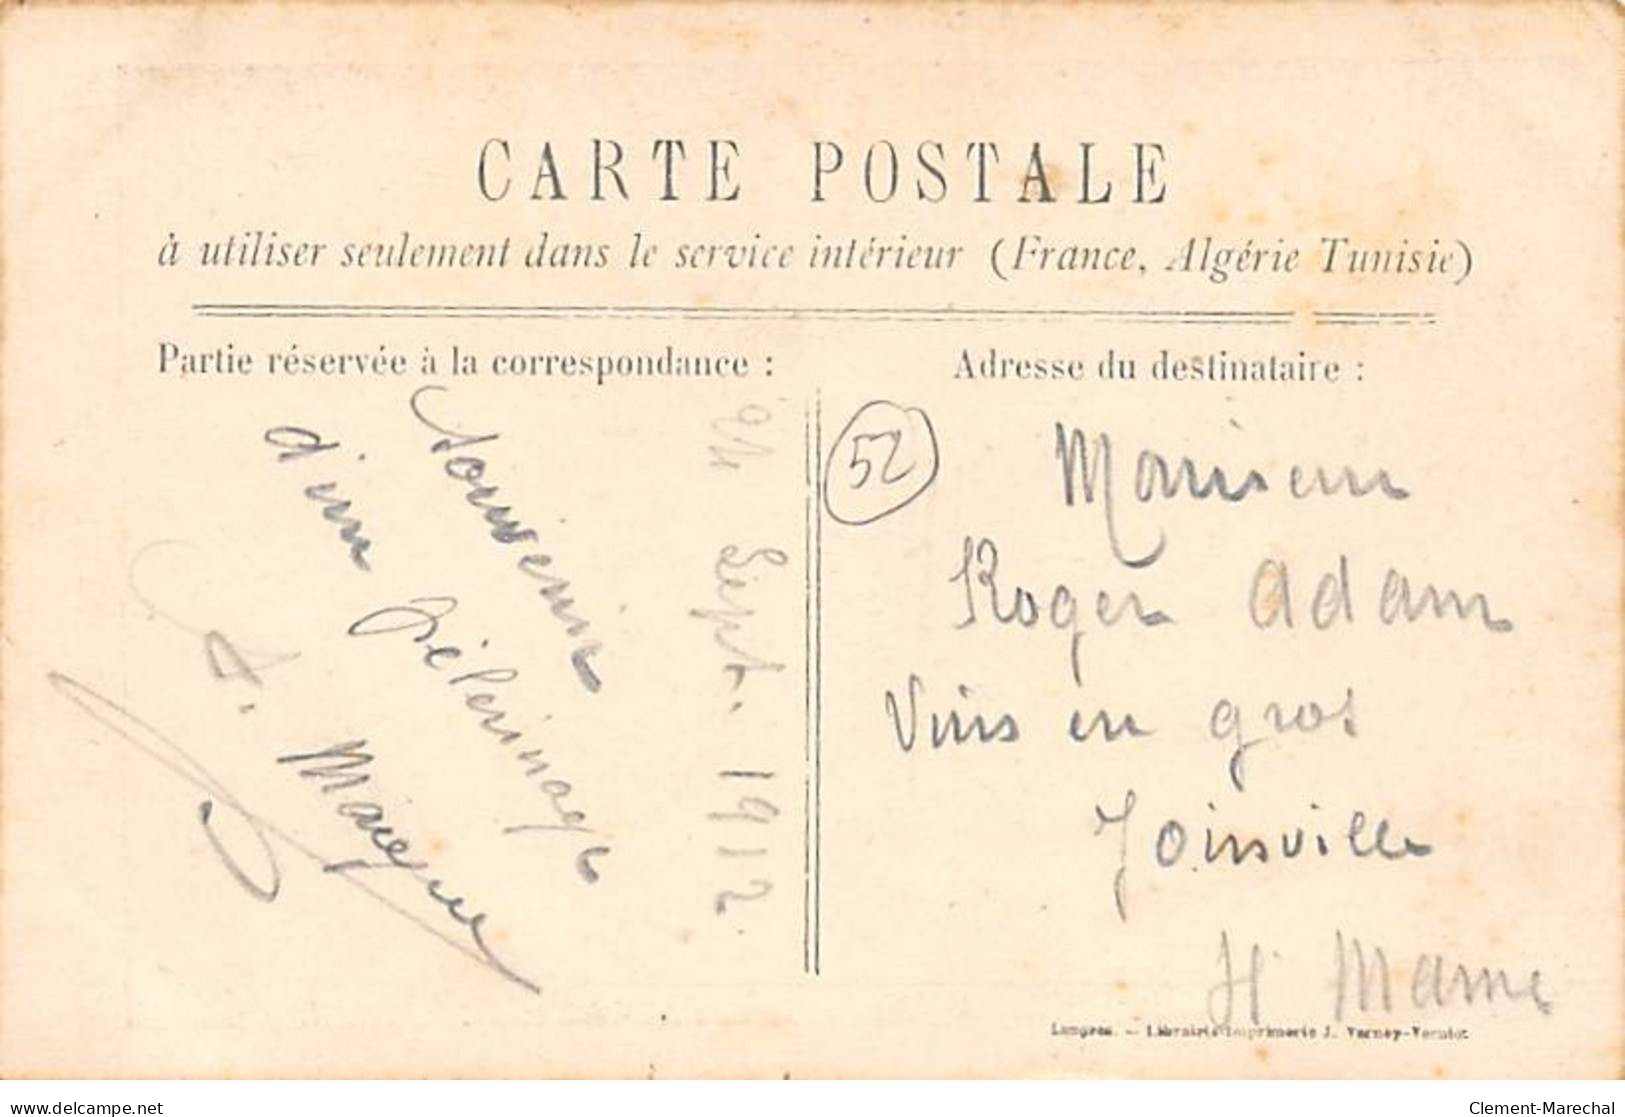 CARTE POSTALE
à utiliser seulement dans le service intérieur (France, Algérie Tunisie)
Partie réservée à la correspondance :
Souvenir
d'un pélerinage
Sept. 1912.
Adresse du destinataire :
52
Monsieur
Roger Adam
Vins en gros
Joinville
Hte Marne
Langres. — Librairie-Imprimerie J. Varney-Verniot
delcampe.net
Clement-Marechal